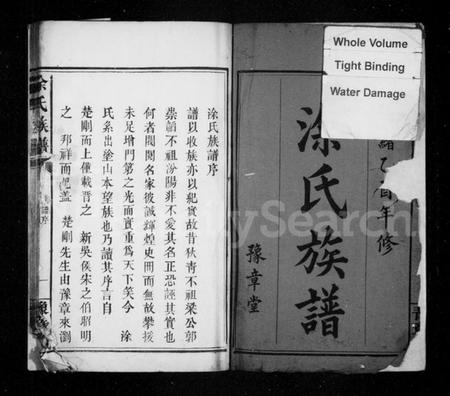 Whole Volume
Tight Binding
Water Damage
緒乙酉年修
涂氏族譜
豫章堂
涂氏族譜序
譜以收族亦以紀實也昔狄青不祖梁公郭
崇韜不祖汾陽非不愛其名正恐誣其實也
何者閥閱名家彼誠輝煌史冊而無故攀援
未足增門第之光而實重為天下笑今 涂
氏系出塗山本望族也乃讀其序言自
楚剛而上僅載晉之 新吳侯宋之伯昭明
之 邦祥而已蓋 楚剛先生由豫章來瀏
涂氏族譜
譜序